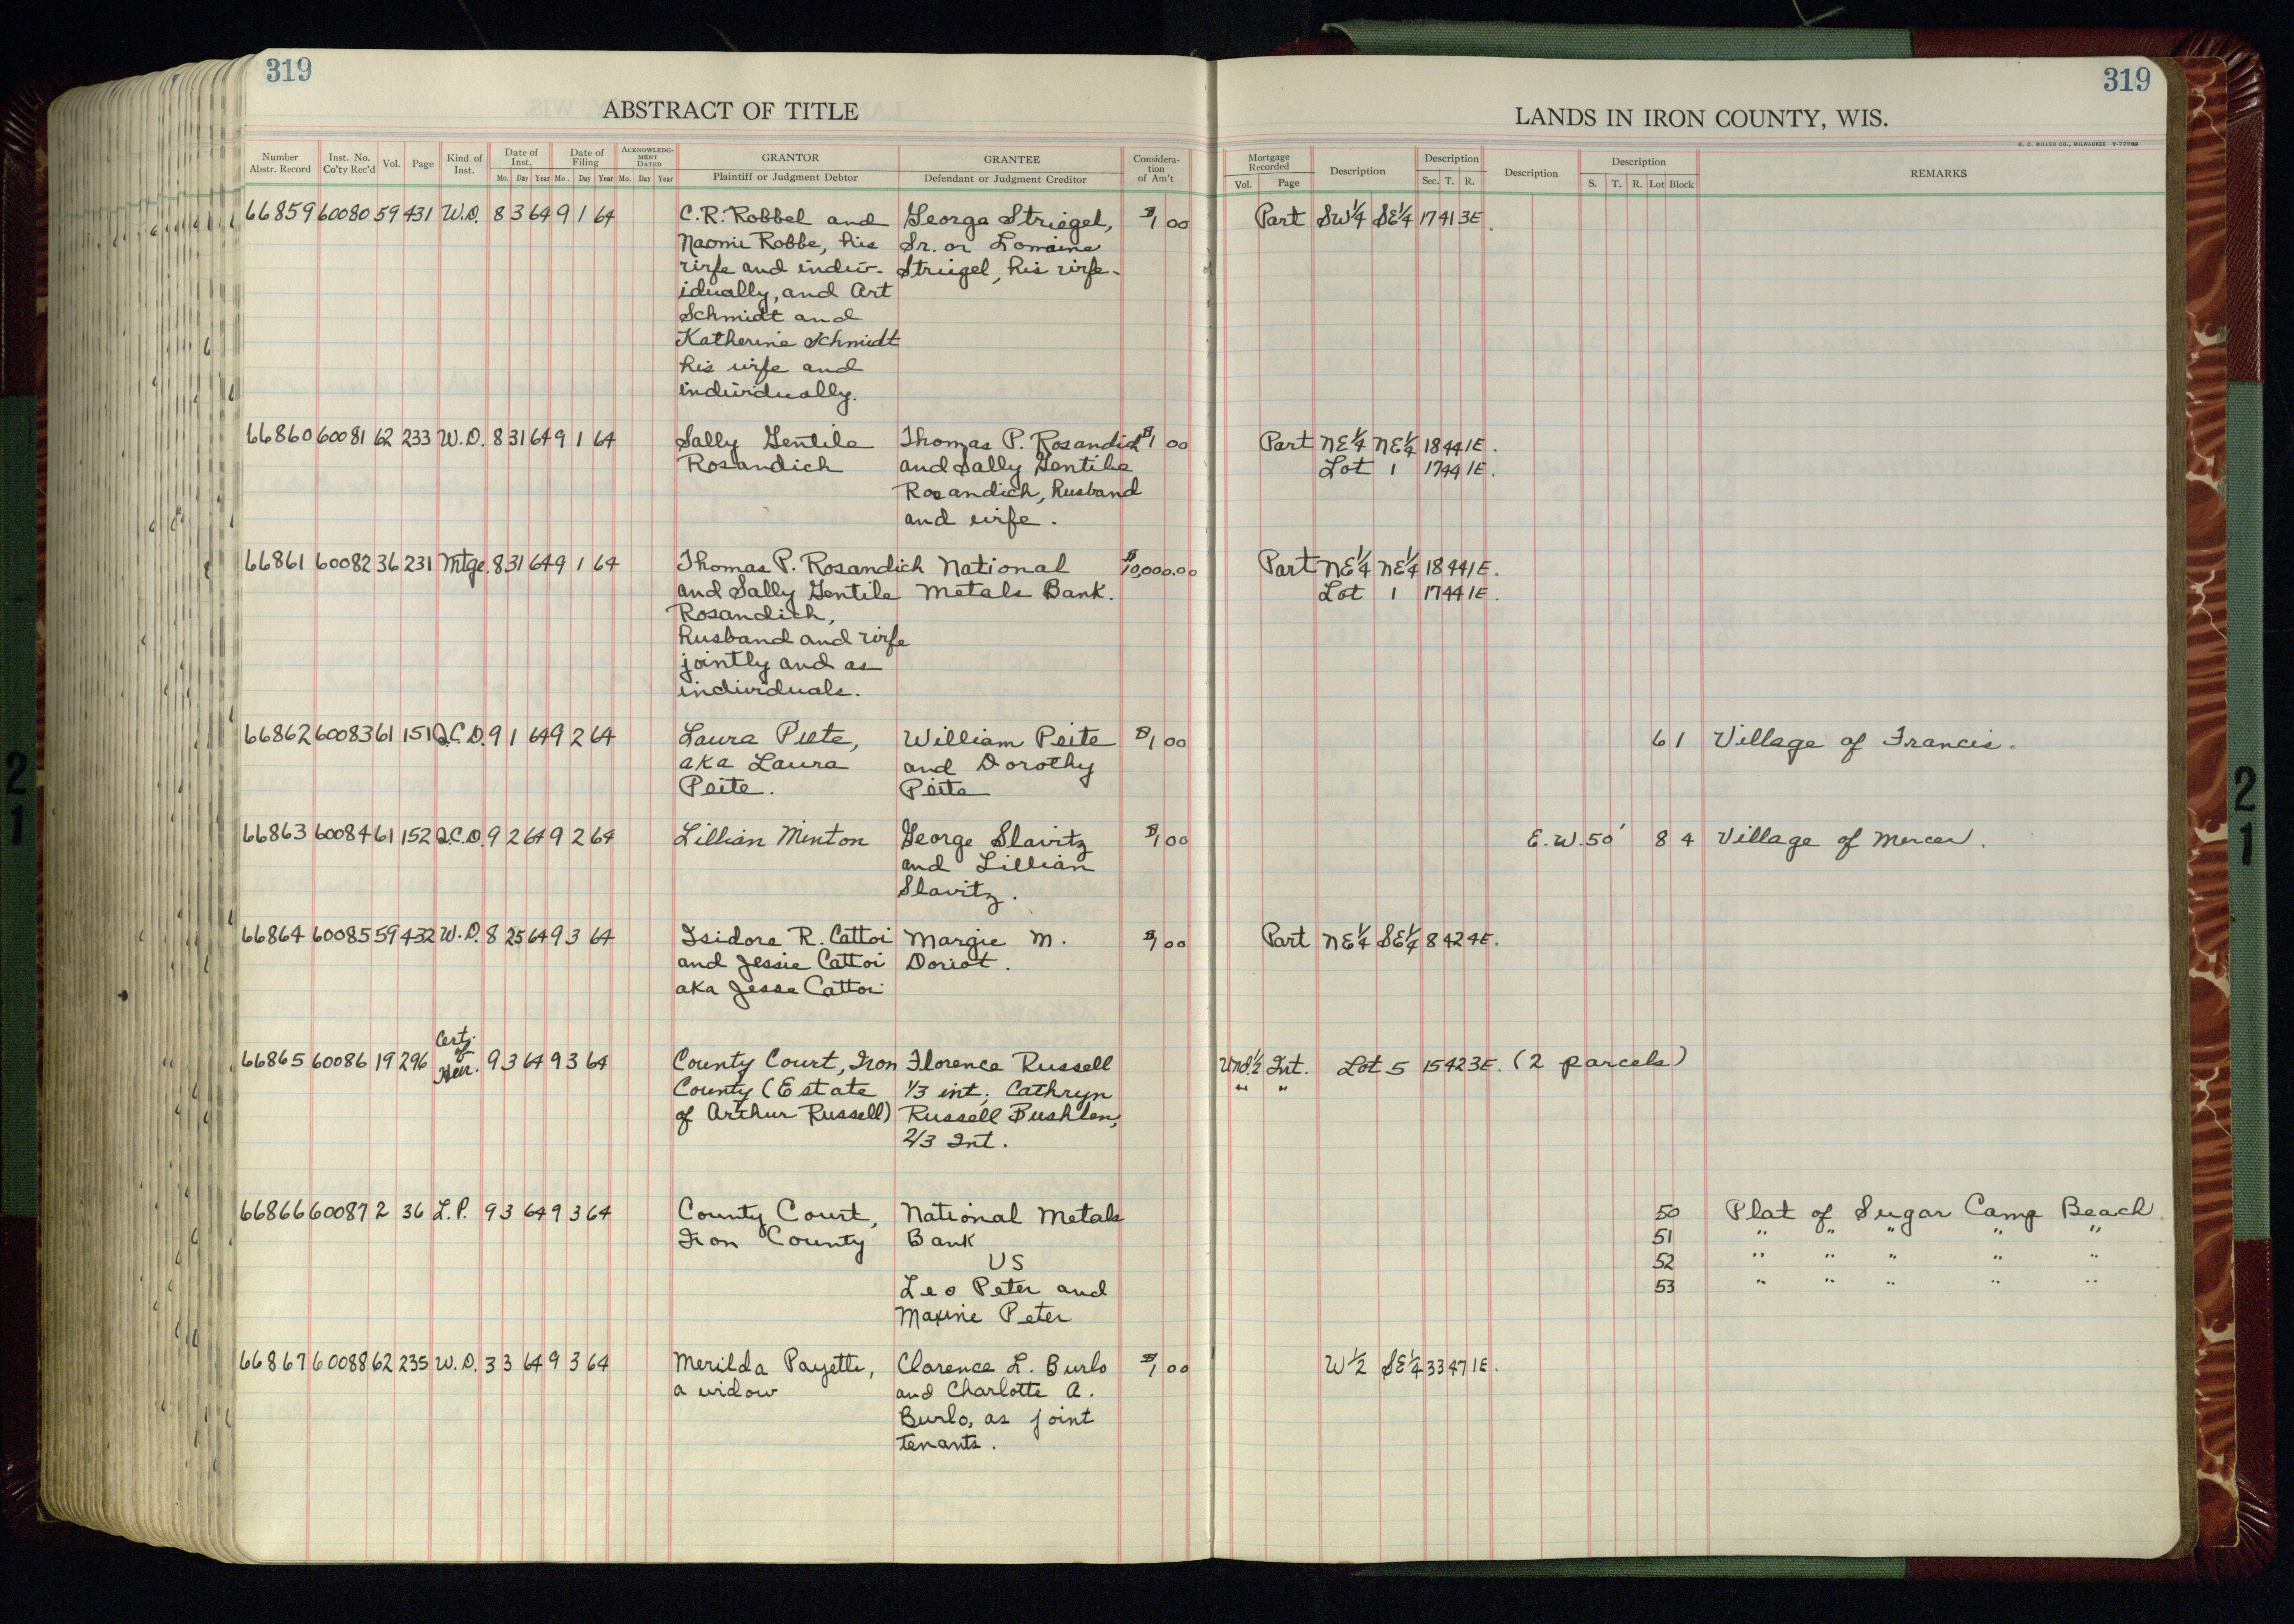 319
319
ABSTRACT OF TITLE
LANDS IN IRON COUNTY, WIS.
H. C. MILLER CO., MILWAUKEE
Number Abstr. Record Inst. No. Co'ty Rec'd Vol. Page Kind of Inst. Date of Inst. Mo. Day Year Date of Filing Mo. Day Year ACKNOWLEDGMENT DATED Mo. Day Year GRANTOR Plaintiff or Judgment Debtor GRANTEE Defendant or Judgment Creditor Consideration of Am't Mortgage Recorded Vol. Page Description Description Sec. T. R. Description Description S. T. R. Lot Block REMARKS
66859 60080 59 431 W.D. 8 3 64 9 1 64 C. R. Robbel and George Striegel, $1 00 Part SW1/4 SE1/4 17 41 3E.
Naomi Robbe, his Sr. or Lorraine
wife and indiv- Striegel, his wife.
idually, and Art
Schmidt and
Katherine Schmidt
his wife and
individually.
66860 60081 62 233 W.D. 8 31 64 9 1 64 Sally Gentile Thomas P. Rosandich $1 00 Part NE1/4 NE1/4 18 44 1E.
Rosandich and Sally Gentile Lot 1 17 44 1E.
Rosandich, husband
and wife.
66861 60082 36 231 Mtge. 8 31 64 9 1 64 Thomas P. Rosandich National $10,000.00 Part NE1/4 NE1/4 18 44 1E.
and Sally Gentile Metals Bank. Lot 1 17 44 1E.
Rosandich,
husband and wife
jointly and as
individuals.
66862 60083 61 151 Q.C.D. 9 1 64 9 2 64 Laura Piete, William Peite $1 00 6 1 Village of Francis.
aka Laura and Dorothy
Peite. Peite
66863 60084 61 152 Q.C.D. 9 2 64 9 2 64 Lillian Minton George Slavitz $1 00 E. W. 50' 8 4 Village of Mercer.
and Lillian
Slavitz.
66864 60085 59 432 W.D. 8 25 64 9 3 64 Isidore R. Cattoi Margie M. $1 00 Part NE1/4 SE1/4 8 42 4E.
and Jessie Cattoi Doriot.
aka Jesse Cattoi
66865 60086 19 296 Cert. of Heir. 9 3 64 9 3 64 County Court, Iron Florence Russell Und. 1/2 Int. Lot 5 15 42 3E. (2 parcels)
County (Estate 1/3 int; Cathryn " "
of Arthur Russell) Russell Bushlen,
2/3 Int.
66866 60087 2 36 L.P. 9 3 64 9 3 64 County Court, National Metals 50 Plat of Sugar Camp Beach
Iron County Bank 51 " " " " "
VS 52 " " " " "
Leo Peter and 53 " " " " "
Maxine Peter
66867 60088 62 235 W.D. 3 3 64 9 3 64 Merilda Payette, Clarence L. Burlo $1 00 W1/2 SE1/4 33 47 1E.
a widow and Charlotte A.
Burlo, as joint
tenants.
21
21